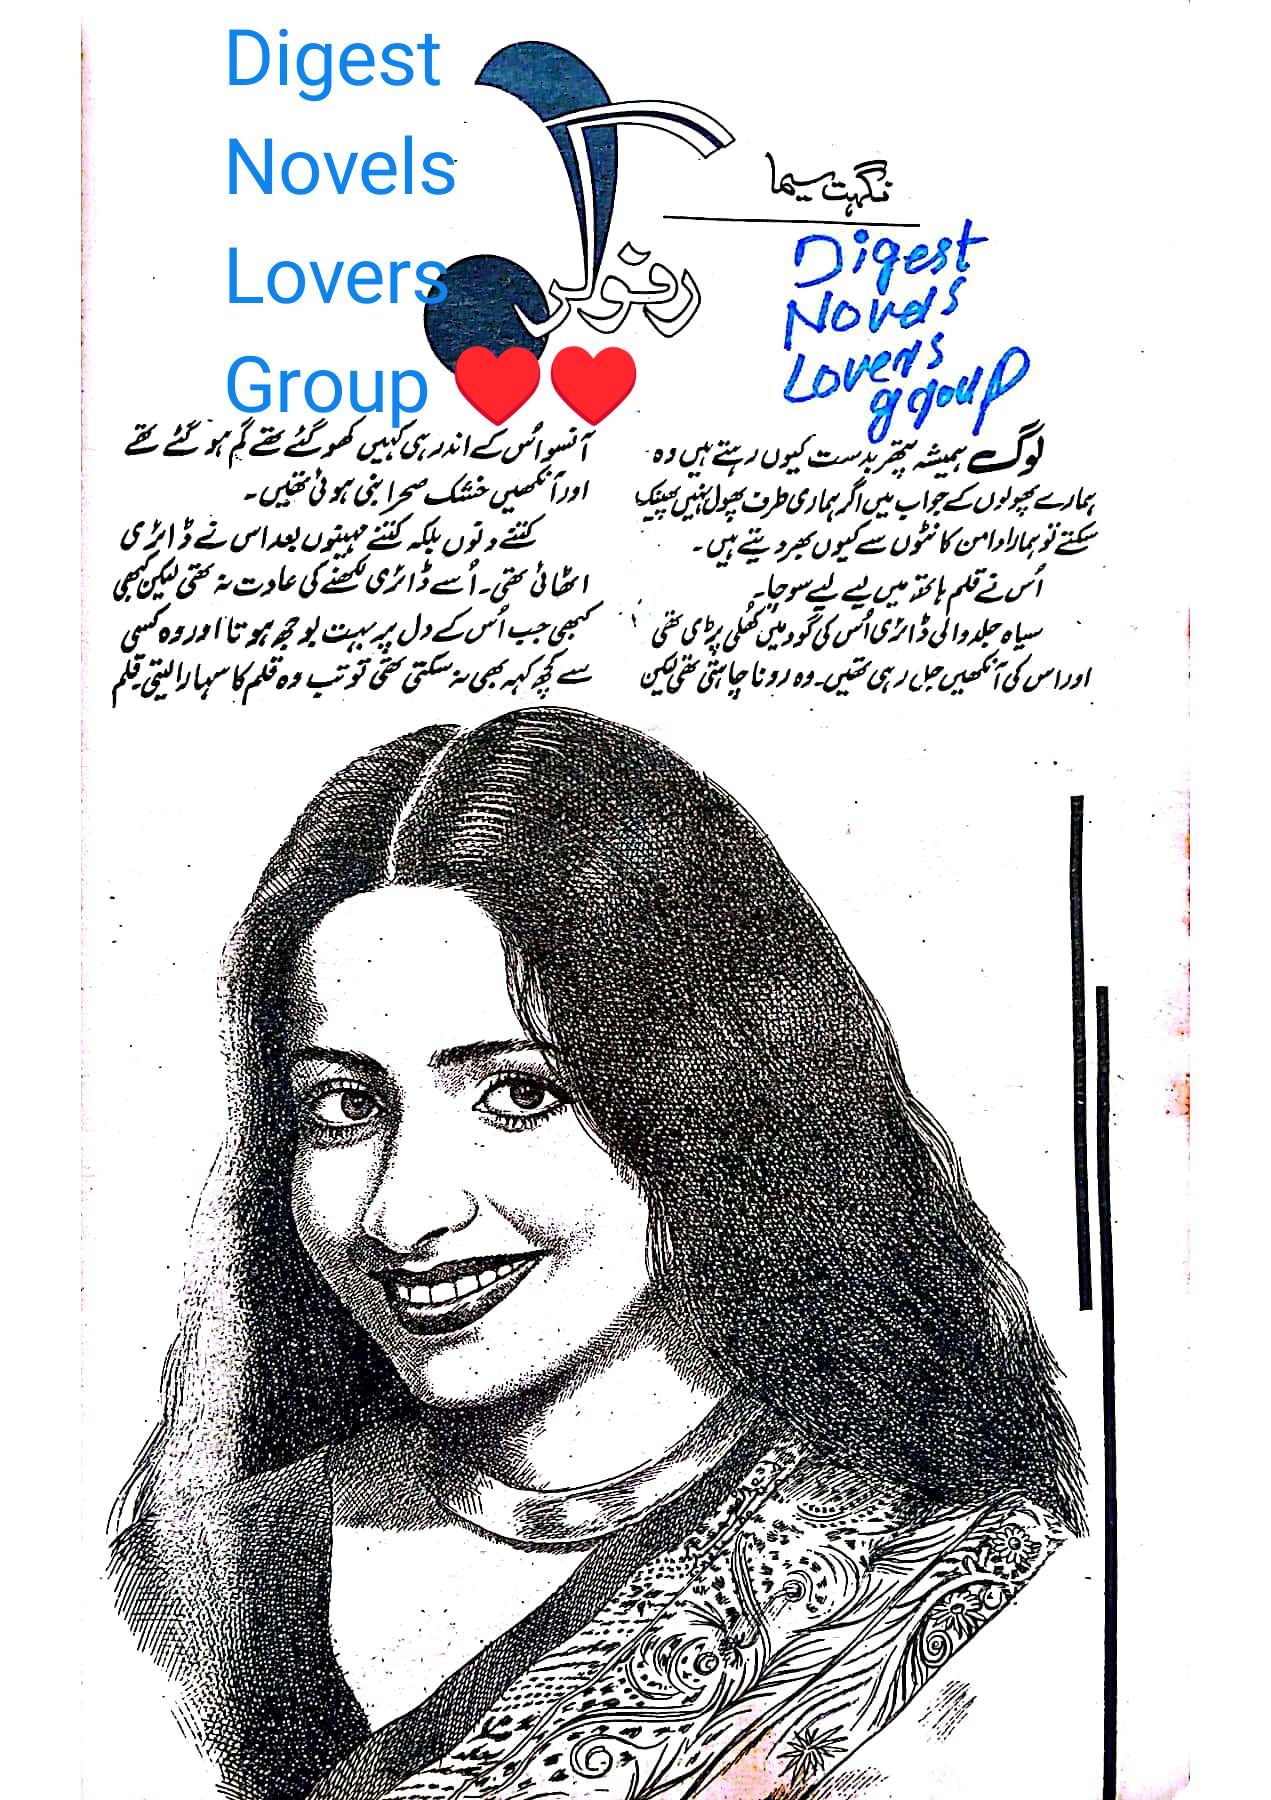 Digest
Novels
Lovers
Group ❤️❤️
نگہت سیما
رفوگر
Digest
Novels
Lovers
ggoup
لوگ ہمیشہ پتھر بدست کیوں رہتے ہیں وہ
ہمارے پھولوں کے جواب میں اگر ہماری طرف پھول نہیں پھینک
سکتے تو ہمارا دامن کانٹوں سے کیوں بھر دیتے ہیں۔
اُس نے قلم ہاتھ میں لیے لیے سوچا۔
سیاہ جلد والی ڈائری اُس کی گود میں کھُلی پڑی تھی
اور اس کی آنکھیں جل رہی تھیں۔ وہ رونا چاہتی تھی لیکن
آنسو اُس کے اندر ہی کہیں کھو گئے تھے گم ہو گئے تھے
اور آنکھیں خشک صحرا بنی ہوئی تھیں۔
کتنے دنوں بلکہ کتنے مہینوں بعد اس نے ڈائری
اٹھائی تھی۔ اُسے ڈائری لکھنے کی عادت نہ تھی لیکن کبھی
کبھی جب اُس کے دل پر بہت بوجھ ہوتا اور وہ کسی
سے کچھ کہہ بھی نہ سکتی تھی تو تب وہ قلم کا سہارا لیتی۔ قلم